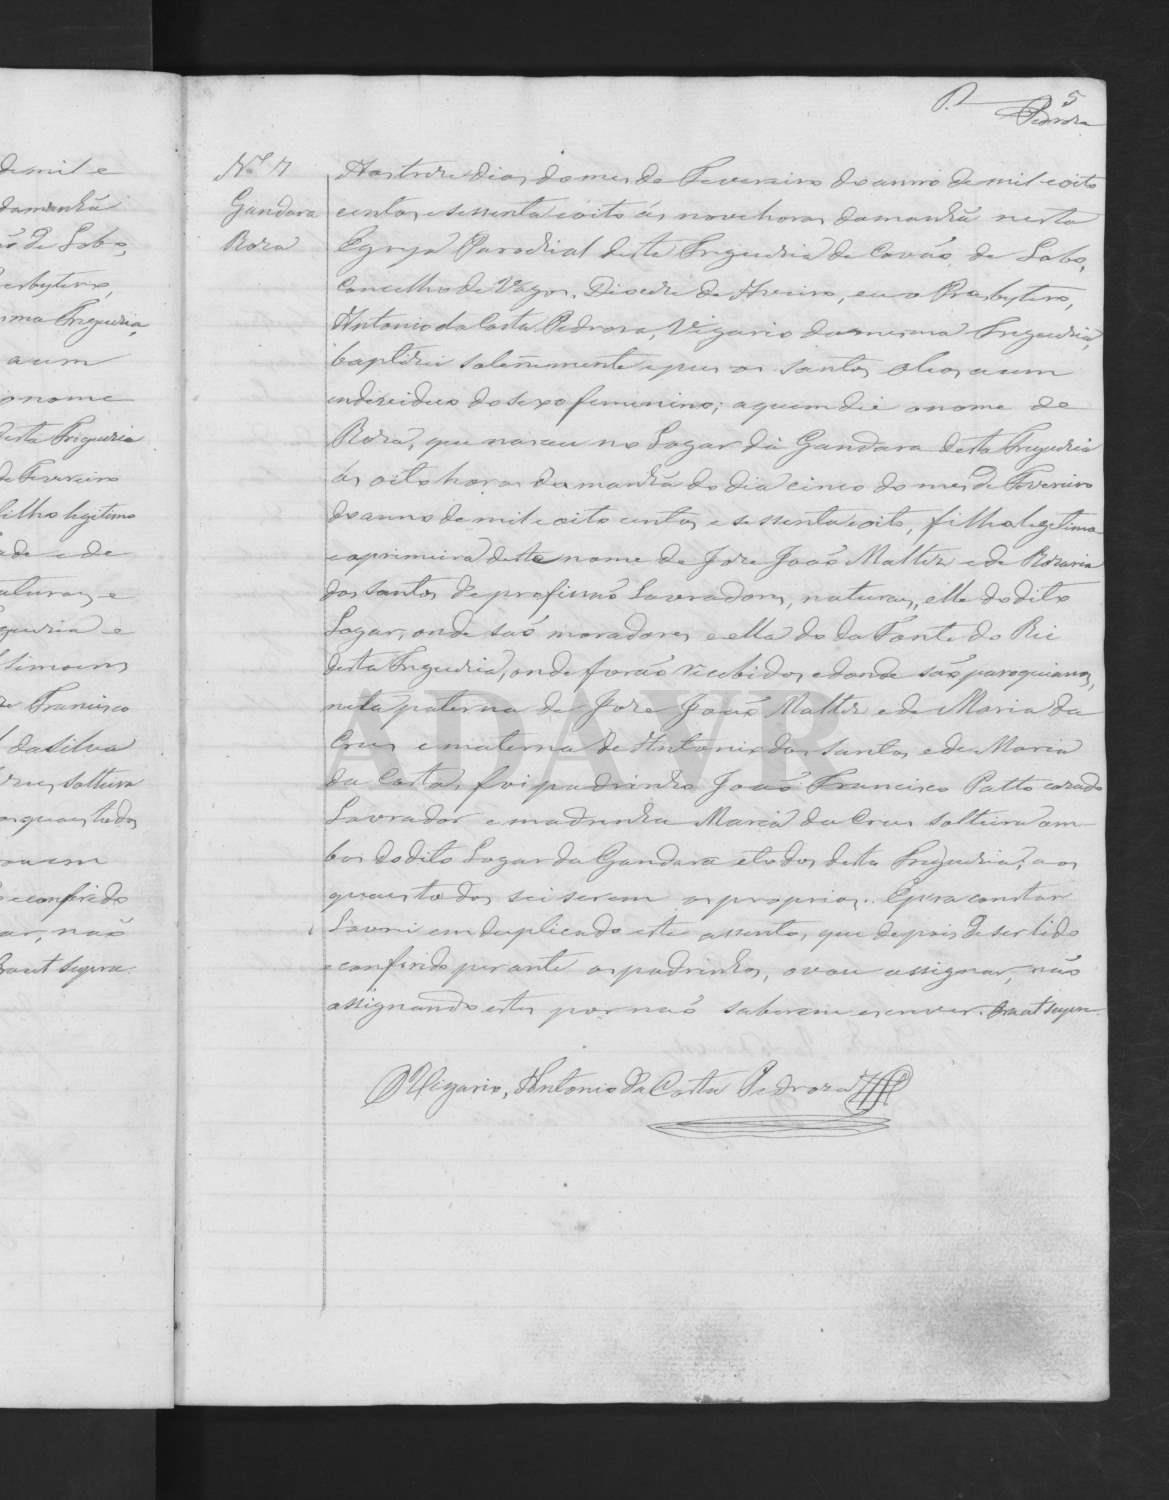 5
Pedroza
demil e
damanhã
ão de Lobo,
esbytero,
sma Freguezia
a um
o nome
desta Freguezia
de Fevereiro
filho legitimo
ade e de
naturaes e
guezia e
Simoens
de Francisco
da Silva
Cruz, solteira
os quaes todos
e conferido
ar, não
Era ut supra.
Nº 7
Gandara
Roza
Aos treze dias do mes de Fevereiro do anno de mil e oito
centos e sessenta e oito ás nove horas da manhã nesta
Egreja Parochial desta Freguezia de Covão de Lobo,
Concelho de Vagos, Diocese de Aveiro, eu o Presbytero,
Antonio da Costa Pedroza, Vigario da mesma Freguezia,
baptizei solemnemente e puz os santos oleos a um
individuo do sexo femenino; a quem dei o nome de
Roza, que nasceu no Logar da Gandara desta Freguezia
ás oito horas da manhã do dia cinco do mes de Fevereiro
do anno de mil e oito centos e sessenta e oito, filha legitima
e a primeira deste nome de Joze João Malta e de Rozaria
dos Santos de profissão Lavradores, naturaes, elle do dito
Logar, onde são moradores e ella do da Fonte do Rei
desta Freguezia, onde forão recebidos e donde são paroquianos,
neta paterna de Joze João Malta e de Maria da
Cruz e materna de Antonio dos Santos e de Maria
da Costa, foi padrinho João Francisco Patto cazado
Lavrador e madrinha Maria da Cruz solteira am
bos do dito Logar da Gandara e todos desta Freguezia, aos
quaes todos sei serem os proprios. E para constar
Lavrei em duplicado este assento, que depois de ser lido
e conferido perante os padrinhos, o vou assignar, não
assignando estes por não saberem escrever. Era ut supra.
O Vigario, Antonio da Costa Pedroza
ADAVR